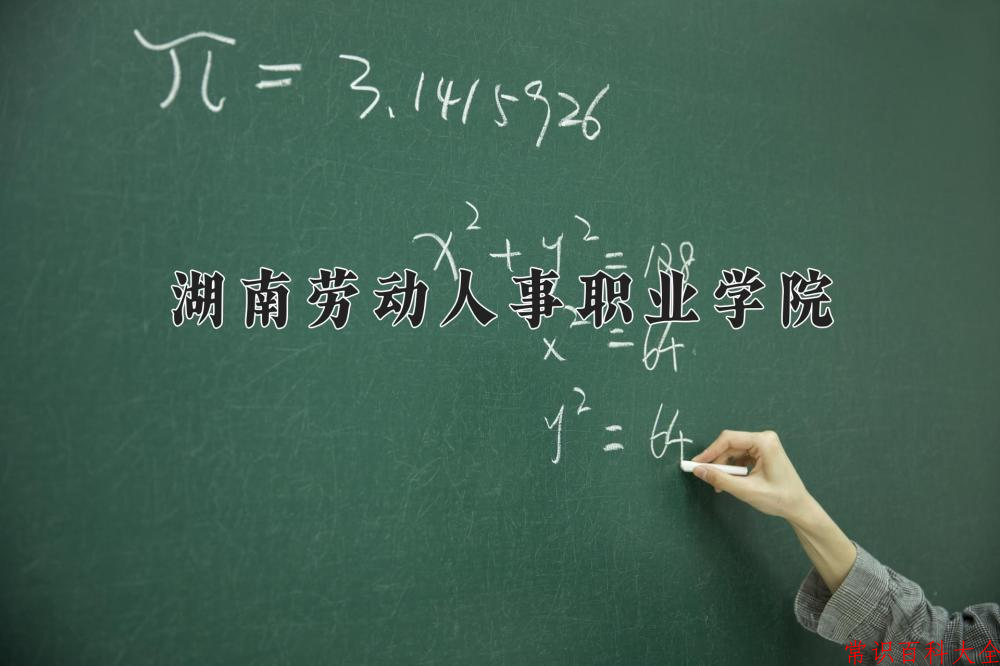 π = 3.1415926
x² + y² = 138
湖南劳动人事职业学院
x² = 64
y² = 64
常识百科大全